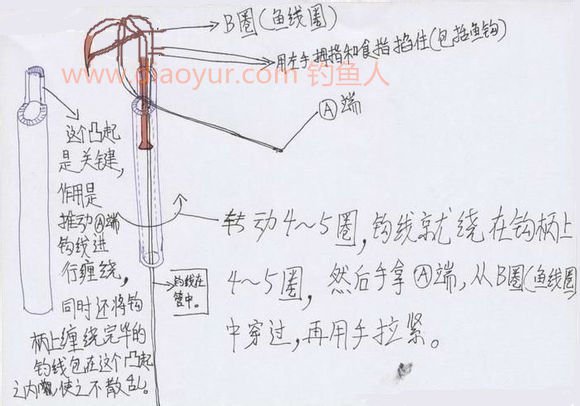 B圈(鱼线圈)
用左手拇指和食指掐住(包括鱼钩)
www.diaoyur.com 钓鱼人
Ⓐ端
这个凸起
是关键,
作用是
推动Ⓐ端
钩线进
行缠绕,
同时还将钩
柄上缠绕完毕的
钓线包在这个凸起
之内,使之不散乱。
转动4～5圈,钩线就绕在钩柄上
4～5圈, 然后手拿Ⓐ端,从B圈(鱼线圈)
中穿过,再用手拉紧。
钓线在
管中。